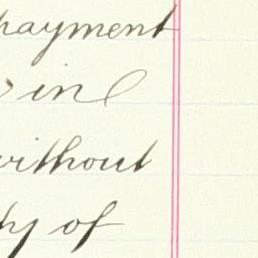 payment
in
without
of